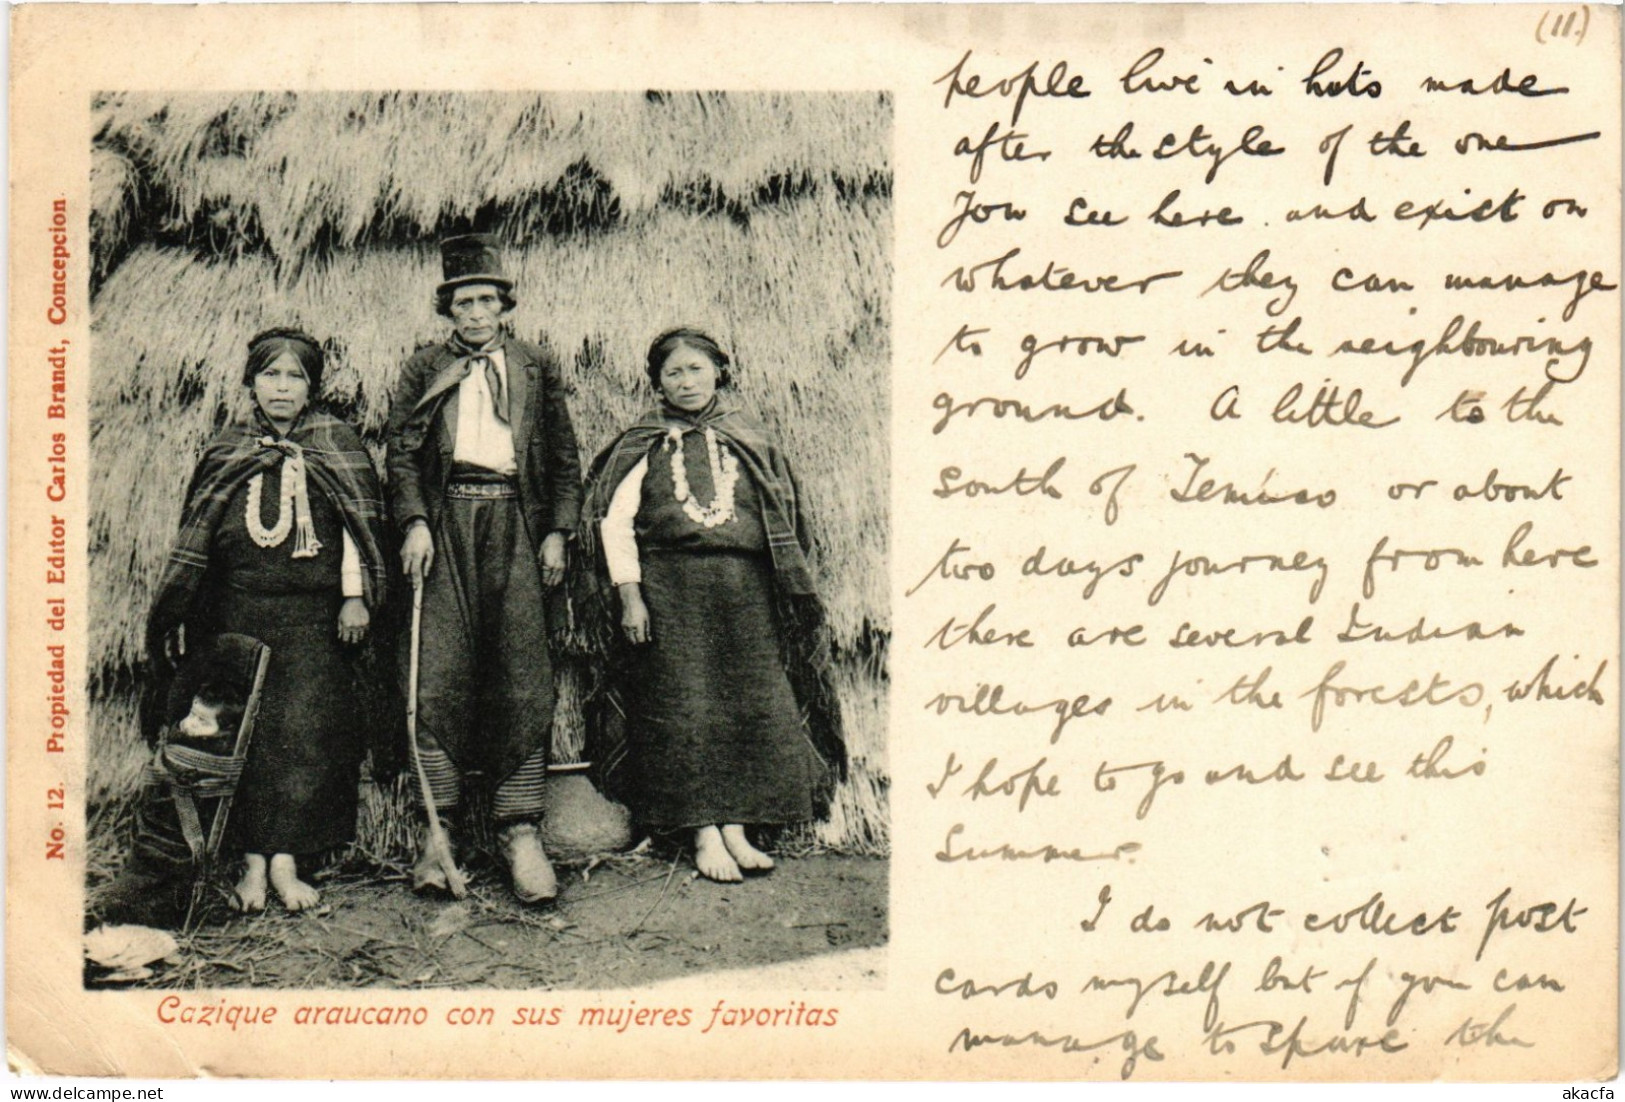 (11.)
people live in huts made
after the style of the one
you see here and exist on
whatever they can manage
to grow in the neighbouring
ground. A little to the
south of Temuco or about
two days journey from here
there are several Indian
villages in the forests, which
I hope to go and see this
summer.
I do not collect post
cards myself but if you can
manage to spare the
No. 12. Propiedad del Editor Carlos Brandt, Concepcion.
Cazique araucano con sus mujeres favoritas
akacfa